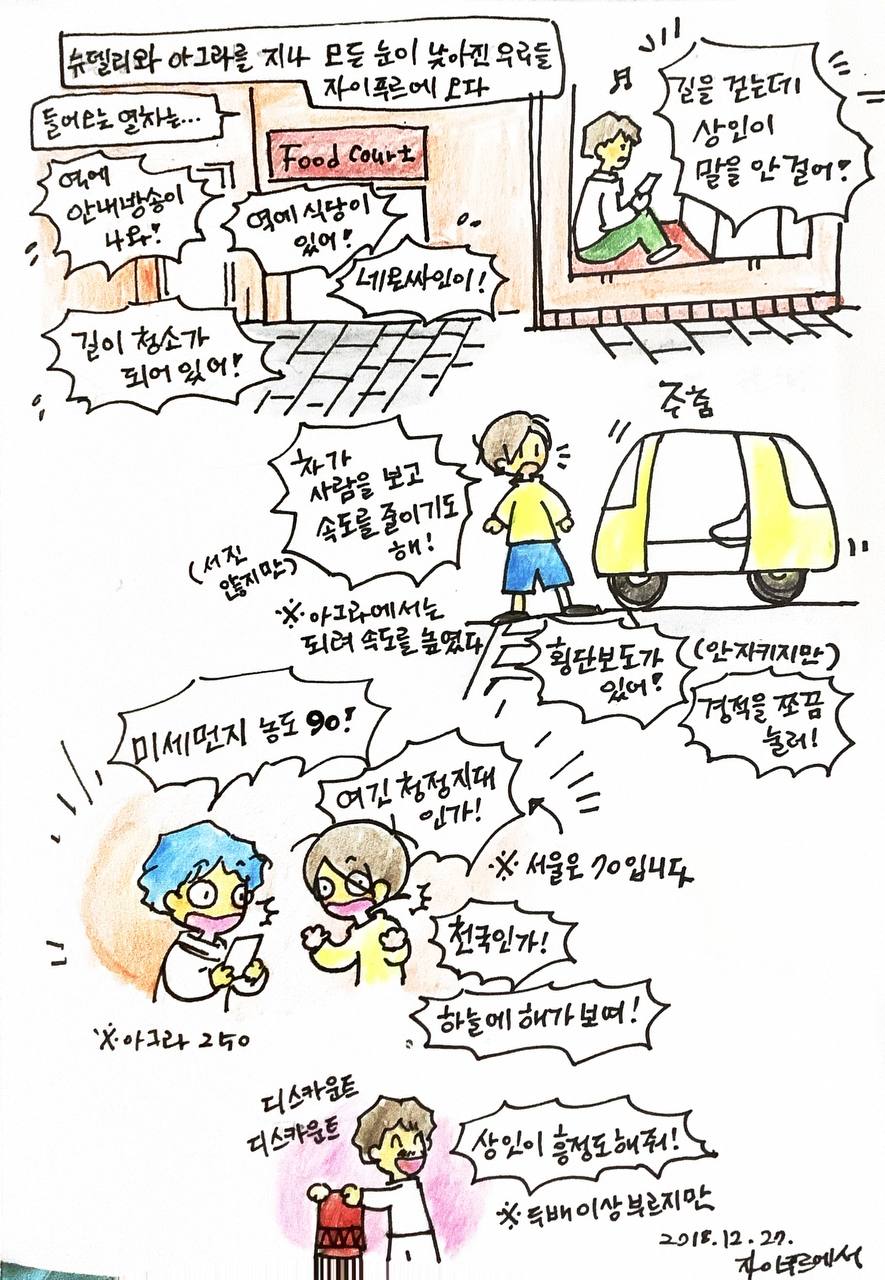 슈델리와 아그라를 지나 모든 눈이 낮아진 우리들
자이푸르에 오다
들어오는 열차는...
역에
안내방송이
나와!
Food Court
역에 식당이
있어!
네온싸인이!
길이 청소가
되어 있어!
길을 걷는데
상인이
말을 안 걸어!
주춤
차가
사람을 보고
속도를 줄이기도
해!
(서진
않지만)
※아그라에서는
되려 속도를 높였다
횡단보도가
있어!
(안 지키지만)
경적을 쪼끔
눌러!
미세먼지 농도 90!
여긴 청정지대
인가!
※ 서울은 70입니다
천국인가!
하늘에 해가 보여!
※아그라 250
디스카운트
디스카운트
상인이 흥정도 해줘!
※두배 이상 부르지만
2018.12.27.
자이푸르에서